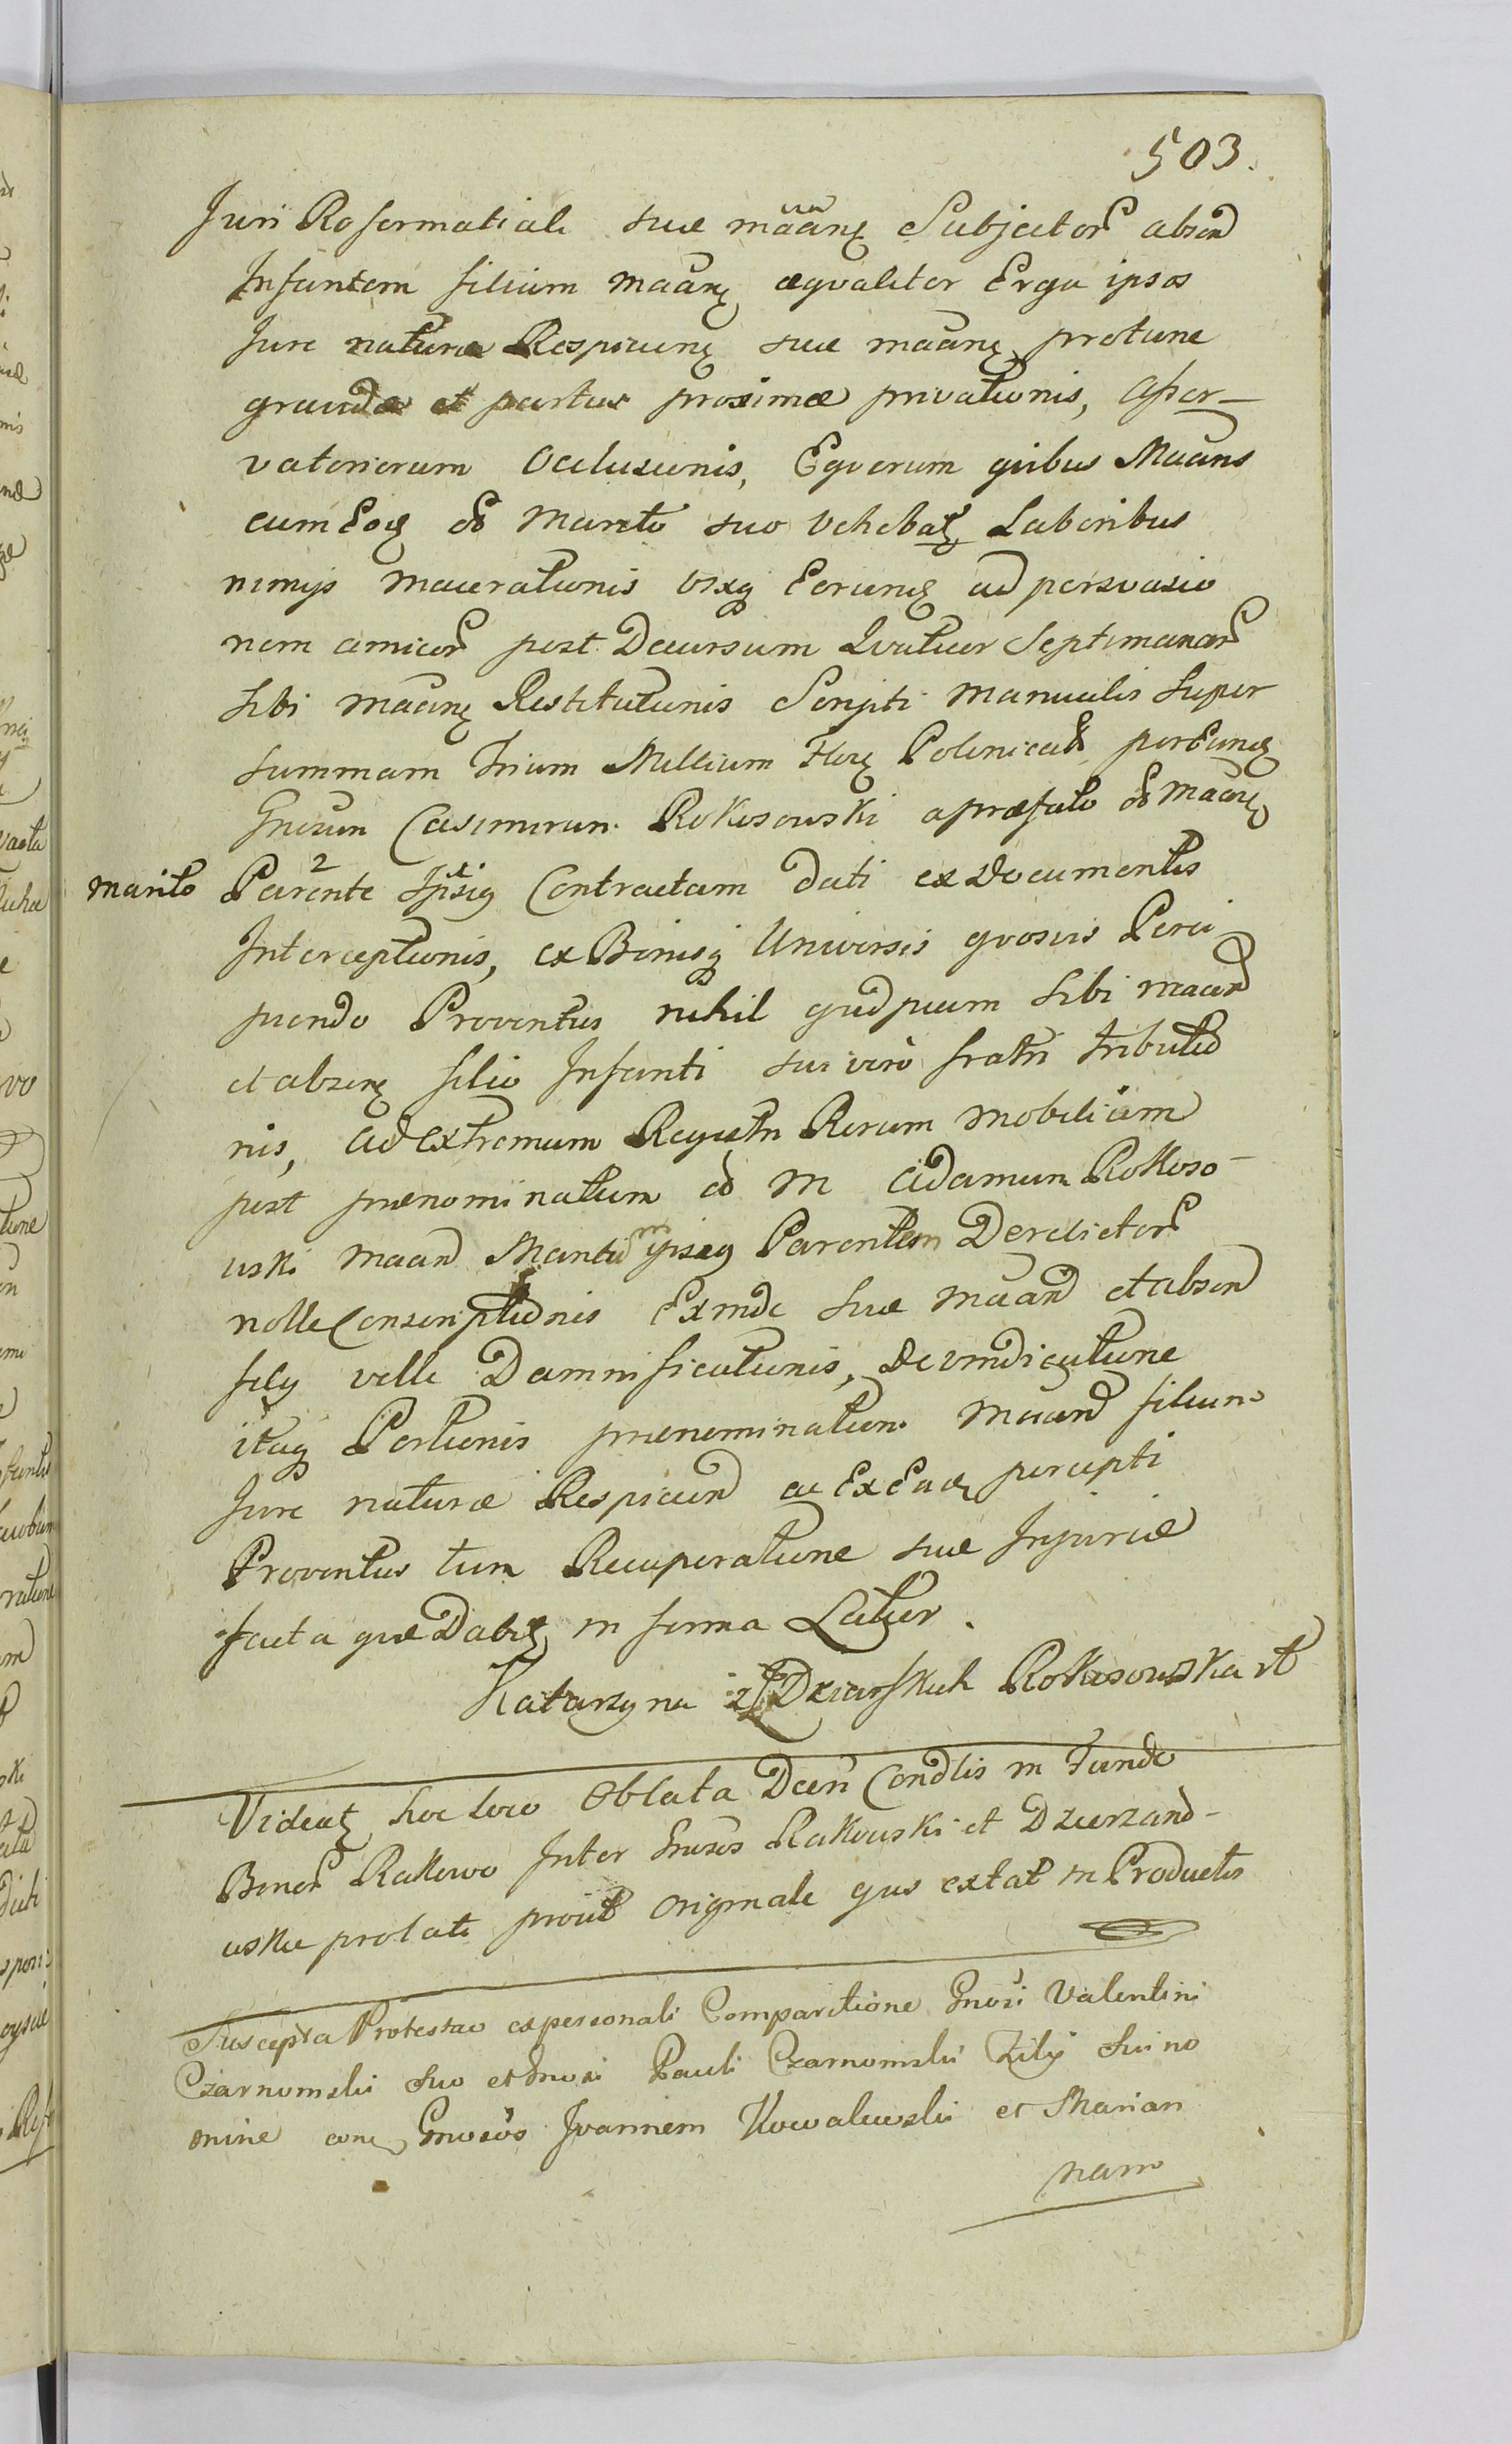 503.
Juri Reformatiali suæ maanę Subjector absen
Infantem filium maanę æqvaliter Erga ipsos
Jure naturæ Respicienę suæ maanę protunc
gravidæ et partus proximæ privationis, Asser-
vatoriorum Occlusionis, Eqvorum qvibus Maans
cum Eoq̨ do Marito suo Vehebat Laboribus
nimijs macerationis Vixq̨ Eorunq̨ ad persvasio
nem amicor post Decursum Qvatuor Septimanar
sibi maanę Restitutionis Scripti Manualis super
summam Trium Millium Flor Polonical per Eunq̨
Gnosum Casimirum Rokosowski a præfato do Maanę
marito Parente Ipsiq̨ Contractam dati ex Documentis
Interceptionis, ex Bonisq̨ Universis qvosvis Perci
piendo Proventus nihil qvidpiam sibi maan
et absenę filio Infanti sui vero fratri tributio
nis, Ad extremum Regestri Rerum mobilium
post prænominatum do M Adamum Rokoso-
wski maan Maritum ipsiq̨ Parentem Derelictor
nolle Conscriptionis Exinde suæ maan et absen
filij velle Damnificationis, De vindicatione
itaq̨ Portionis prænominatum maan filium
Jure naturæ Respicien ac Ex Eaq̨ percepti
Proventus tum Recuperatione suæ Injuriæ
facta qvæ Dabit in forma Latior.
Katarzyna z Dziarskich Rokosowska rt
Videat hoc loco Oblata Dcen Condlis in Fundo
Bonor Rakowo Inter Gnosos Rakowski et Dzierzano-
wskie prolati prout Originale qvs extat in Productis
Suscepta Protestao ex personali Comparitione Gnosi Valentini
Czarnomski suo et Gnosi Pauli Czarnomski Filij sui no
mine conę Gnosos Joannem Kowalewski et Marian
nam